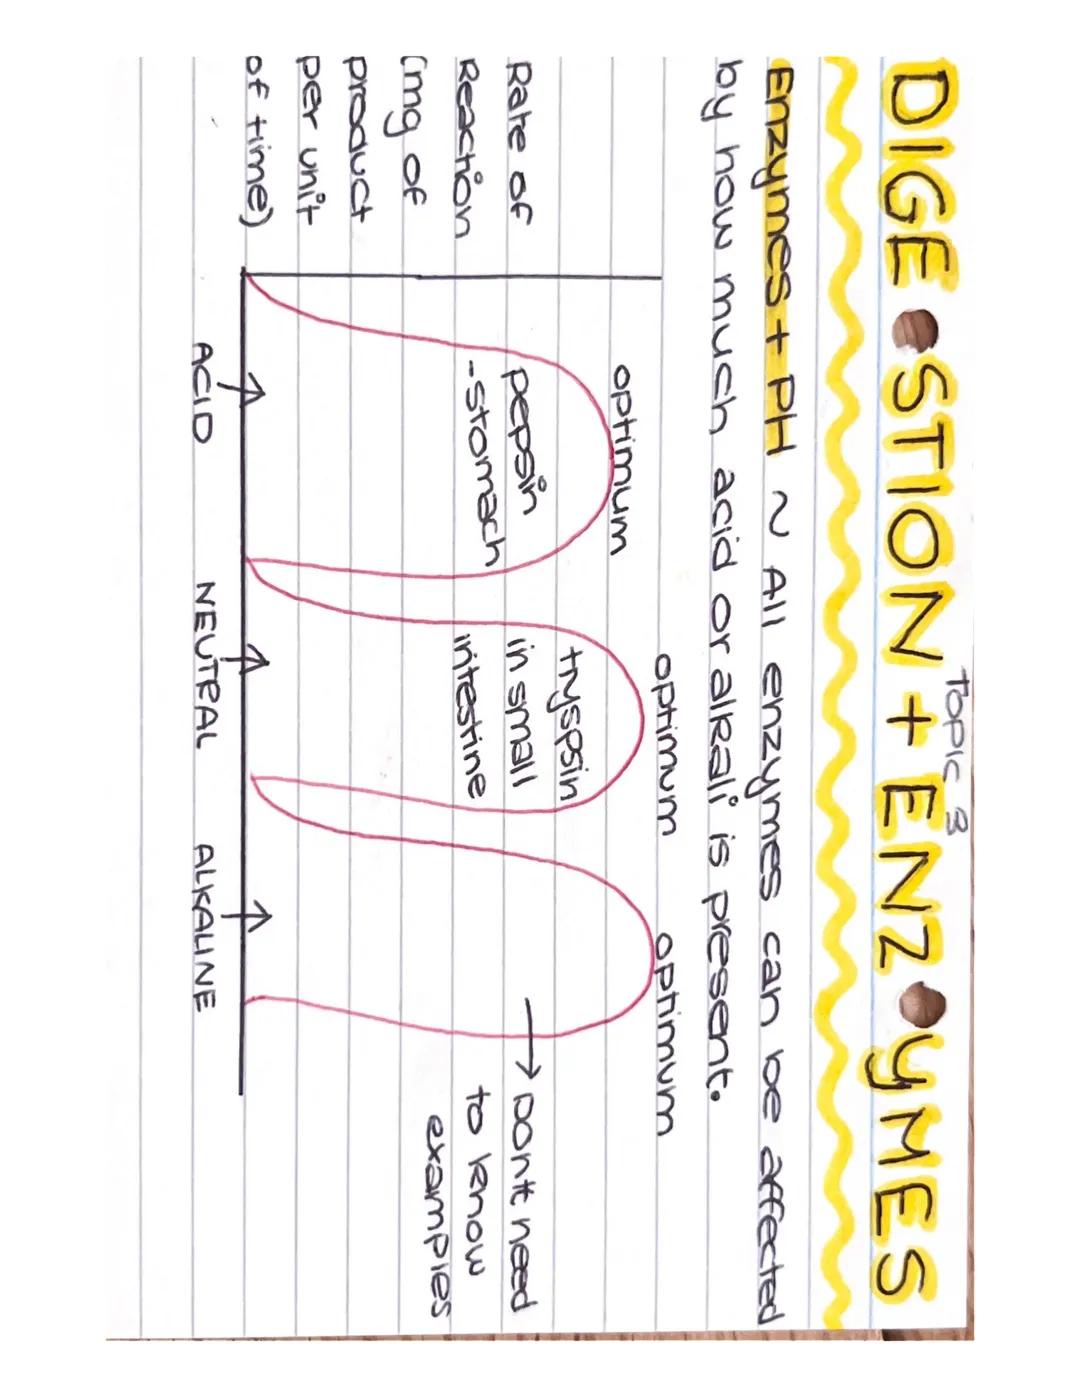 Topic 3
DIGESTION + ENZYMES
Enzymes + PH ~ All enzymes can be affected
by how much acid or alkali is present.
optimum
optimum
optimum
Rate of
Reaction
(mg of
product
per unit
of time)
pepsin
-stomach
tryspsin
in small
intestine
→ Don't need
to know
examples
ACID
NEUTRAL
ALKALINE